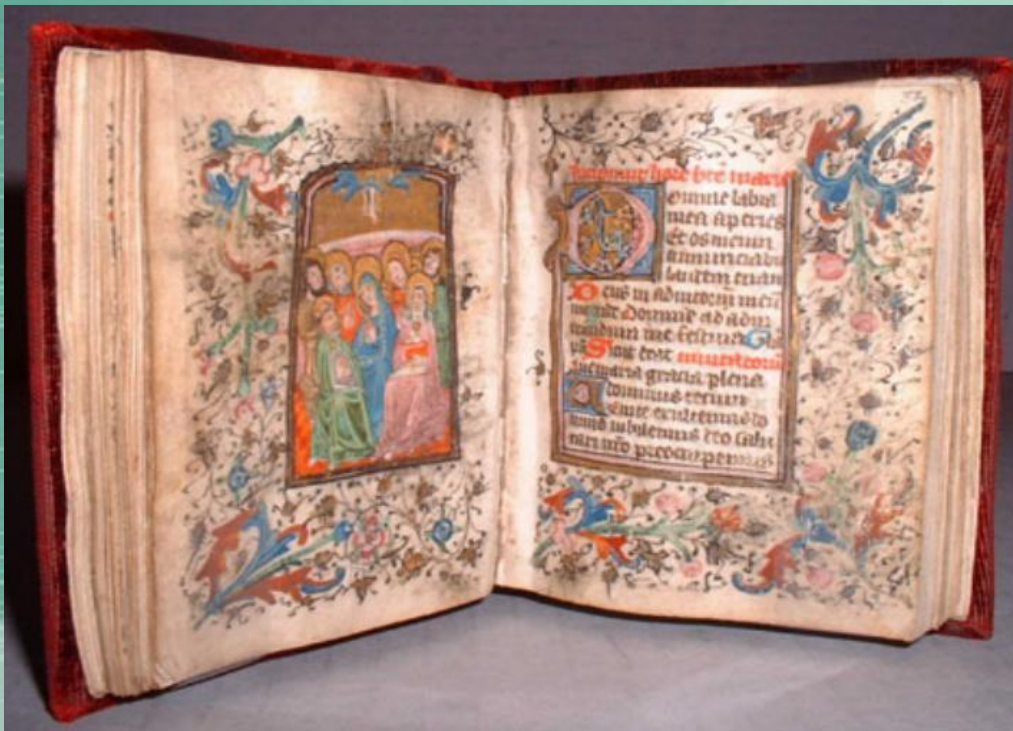 hore bte marie
Domine labia
mea aperies
Et os meum
annunciabit
laudem tuam
Deus in adiutorium meū
intende Domine ad adiu
uandum me festina Gla
Sicut erat
Aue maria gracia plena
dominus tecum
Uenite exultemus do
mino iubilemus deo salu
tari nro preocupemus